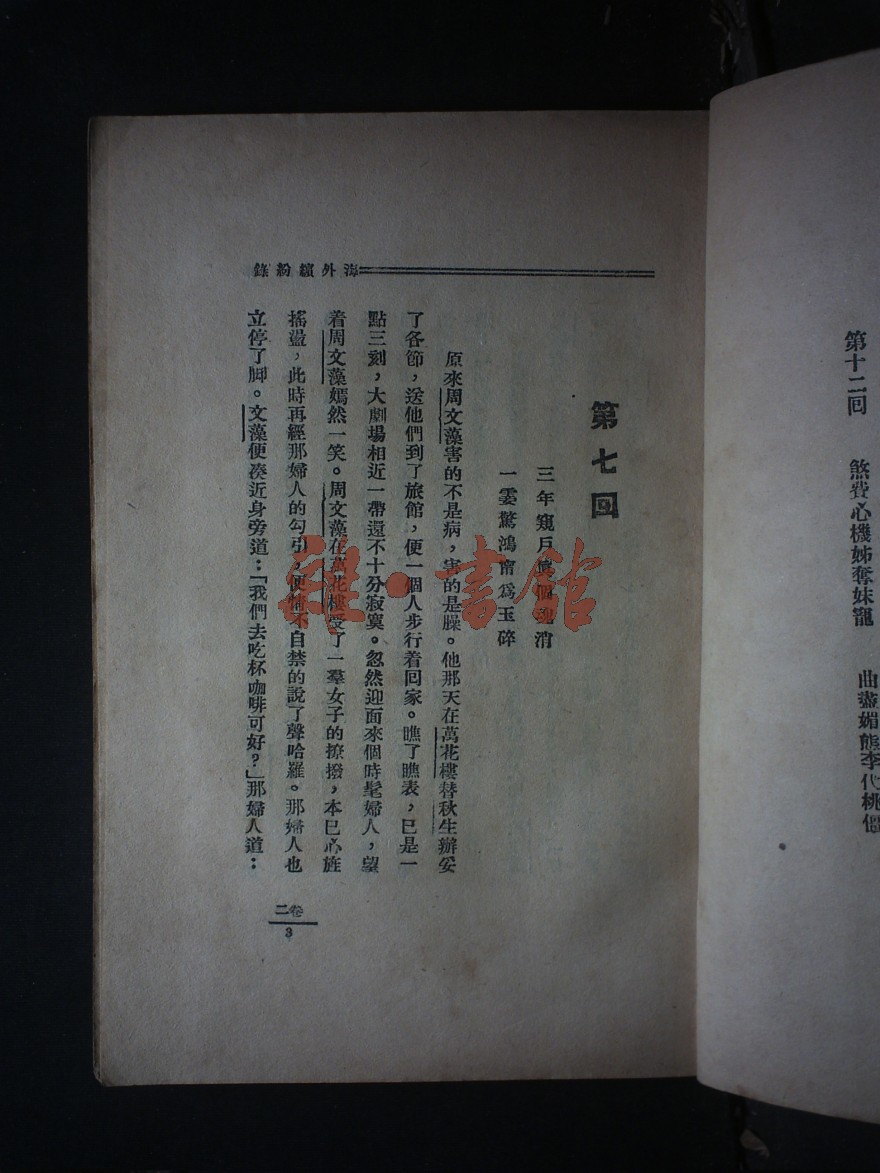 第十二回　煞費心機姊奪妹寵　曲盡媚態李代桃僵
海外繽紛錄
第七回
三年窺戶個消
一霎驚鴻甯爲玉碎
原來周文藻害的不是病，害的是臊。他那天在萬花樓替秋生辦妥
了各節，送他們到了旅館，便一個人步行着回家。瞧了瞧表，已是一
點三刻，大劇場相近一帶還不十分寂寞。忽然迎面來個時髦婦人，望
着周文藻嫣然一笑。周文藻在萬花樓受了一羣女子的撩撥，本已心旌
搖盪，此時再經那婦人的勾引，便情不自禁的說了聲哈羅。那婦人也
立停了脚。文藻便湊近身旁道：「我們去吃杯咖啡可好？」那婦人道：
卷二
3
雜·書館